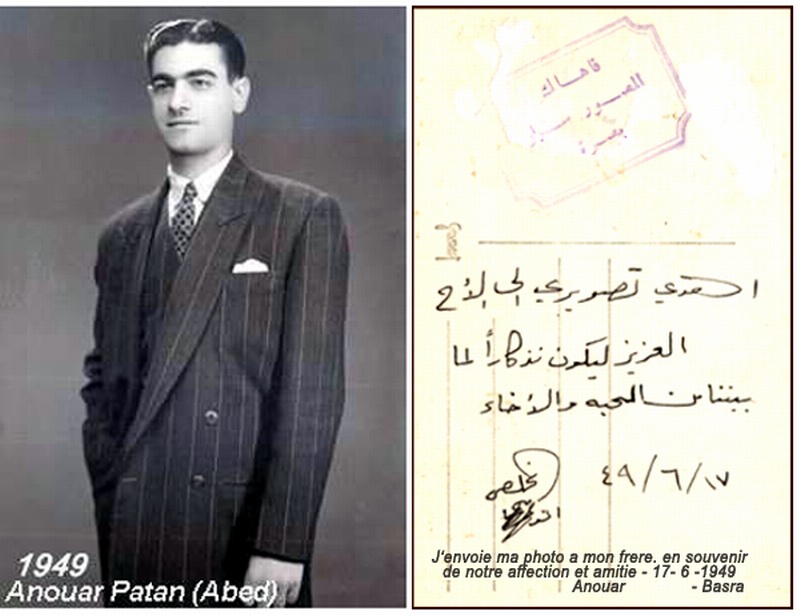 1949
Anouar Patan (Abed)
قاهاك
المصور سيار
بصرة
اهدي تصويري الى الأخ
العزيز ليكون تذكاراً لما
بيننا من المحبه والأخاء
٤٩/٦/١٧
المخلص
J'envoie ma photo a mon frere. en souvenir
de notre affection et amitie - 17- 6 -1949
Anouar - Basra